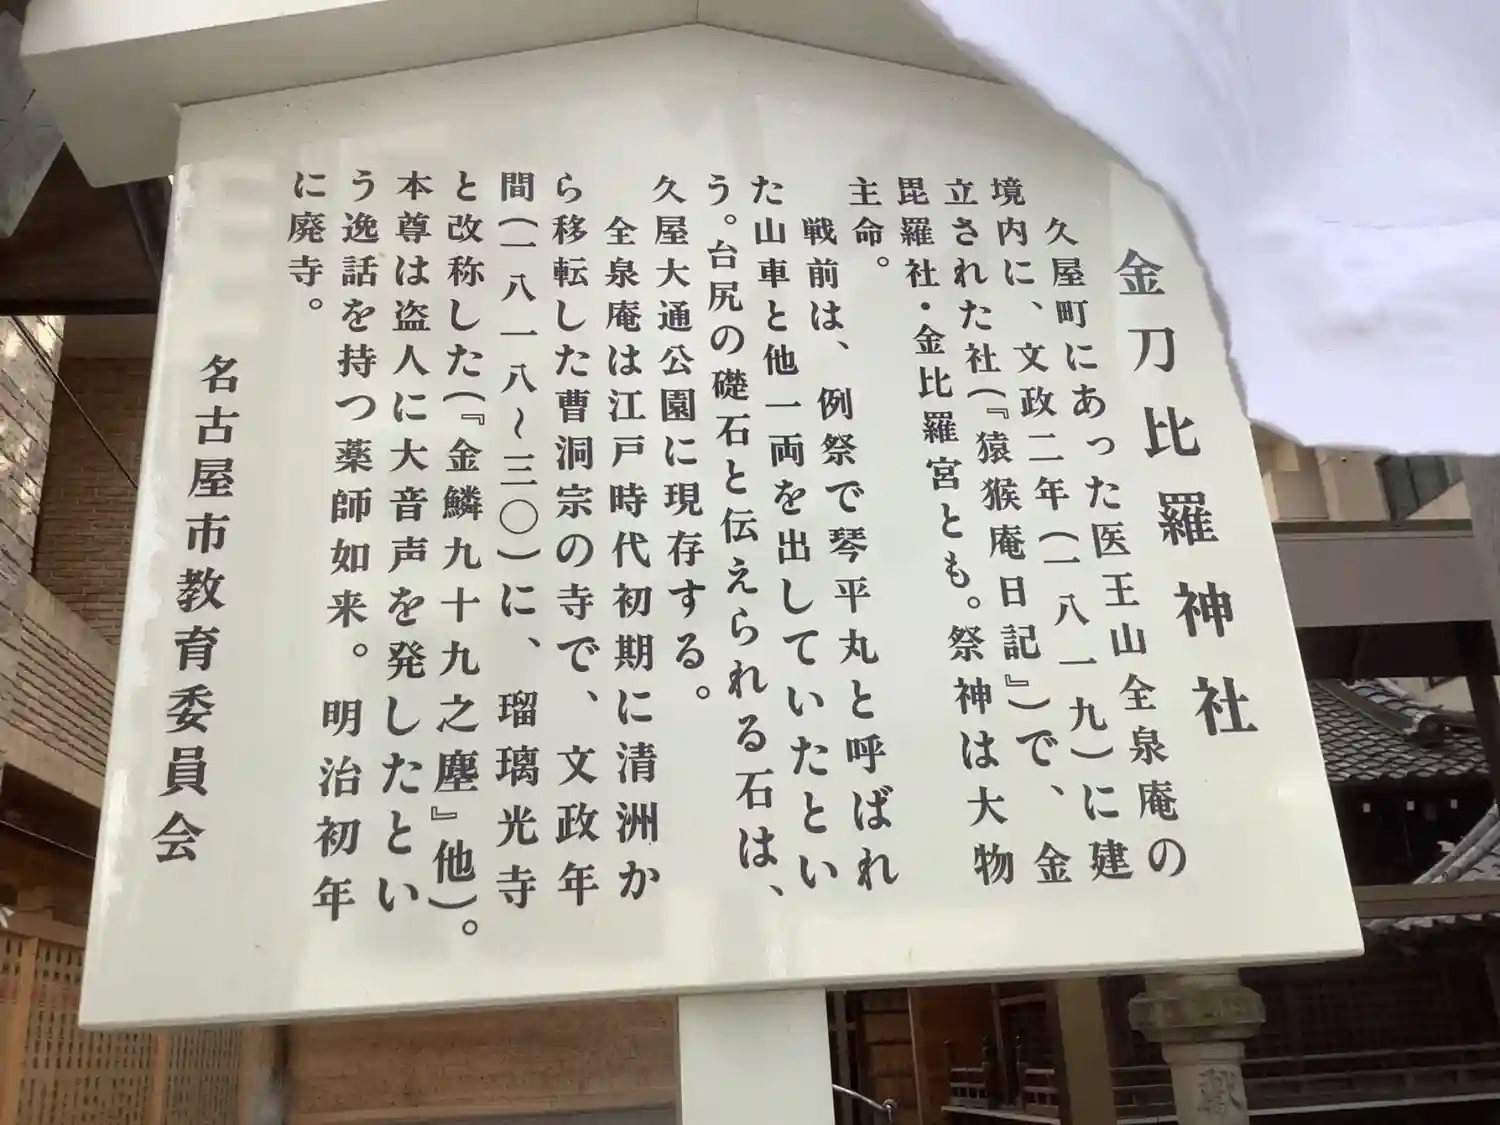 金刀比羅神社
久屋町にあった医王山全泉庵の
境内に、文政二年(一八一九)に建
立された社(『猿猴庵日記』)で、金
毘羅社・金比羅宮とも。祭神は大物
主命。
戦前は、例祭で琴平丸と呼ばれ
た山車と他一両を出していたとい
う。台尻の礎石と伝えられる石は、
久屋大通公園に現存する。
全泉庵は江戸時代初期に清洲か
ら移転した曹洞宗の寺で、文政年
間(一八一八〜三〇)に、瑠璃光寺
と改称した(『金鱗九十九之塵』他)。
本尊は盗人に大音声を発したとい
う逸話を持つ薬師如来。明治初年
に廃寺。
名古屋市教育委員会